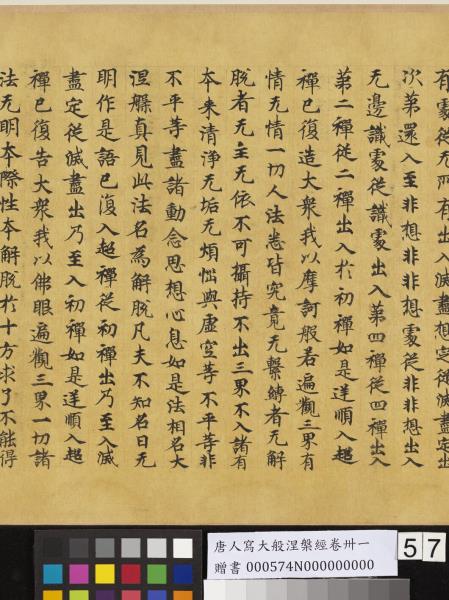 有處從无所有出入滅盡想定從滅盡定出
次第還入至非想非非想處從非非想出入
无邊識處從識處出入第四禪從四禪出入
第二禪從二禪出入於初禪如是逆順入超
禪已復造大衆我以摩訶般若遍觀三界有
情无情一切人法悉皆究竟无繫縛者无解
脫者无主无依不可攝持不出三界不入諸有
本来清淨无垢无煩惱與虛空等不平等非
不平等盡諸動念思想心息如是法相名大
涅槃真見此法名為解脫凡夫不知名曰无
明作是語已復入超禪從初禪出乃至入滅
盡定從滅盡出乃至入初禪如是逆順入超
禪已復告大衆我以佛眼遍觀三界一切諸
法无明本際性本解脫於十方求了不能得
唐人寫大般涅槃經卷卅一
贈書 000574N000000000
5 7